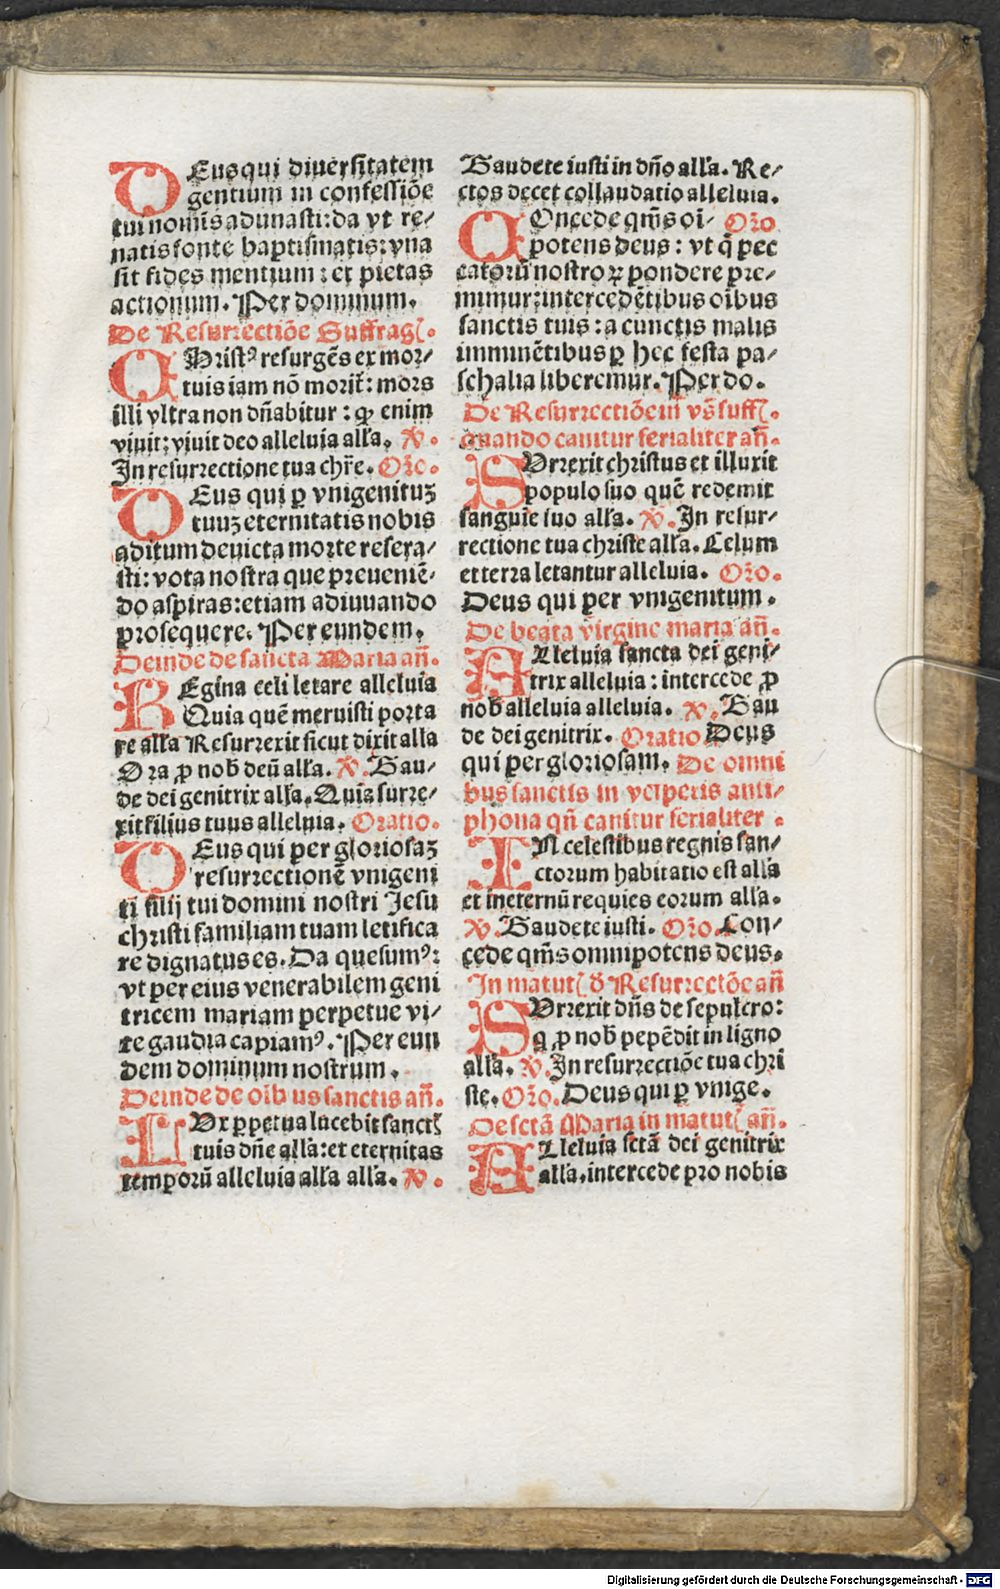 DEus qui diuersitatem
gentium in confessiōe
tui nomīs adunasti: da vt re/
natis fonte baptismatis: vna
sit fides mentium: et pietas
actionum. Per dominum.
De Resurrectiōe Suffrag̃.
CHristꝰ resurgēs ex mor/
tuis iam nō morit̃: mors
illi vltra non dn̄abitur: ꝙ enim
viuit: viuit deo alleluia all'a. ℣.
In resurrectione tua chr̄e. Or̄o.
DEus qui ꝑ vnigenituꝫ
tuuꝫ eternitatis nobis
aditum deuicta morte resera/
sti: vota nostra que preueniē/
do aspiras: etiam adiuuando
prosequere. Per eundem.
Deinde de sancta Maria an̄.
REgina celi letare alleluia
Quia quē meruisti porta
re all'a Resurrexit sicut dixit alla
Ora ꝓ nob̄ deū all'a. ℣. Gau/
de dei genitrix all'a. Quia surre/
xit filius tuus alleluia. Oratio.
DEus qui per gloriosaꝫ
resurrectionē vnigeni
ti filij tui domini nostri Jesu
christi familiam tuam letifica
re dignatus es. Da quesumꝰ:
vt per eius venerabilem geni
tricem mariam perpetue vi/
te gaudia capiamꝰ. Per eun
dem dominum nostrum.
Deinde de oībus sanctis an̄.
LUx ꝑpetua lucebit sanct̃
tuis dn̄e alla: et eternitas
temporū alleluia all'a alla. ℣.
Gaudete iusti in dn̄o all'a. Re/
ctos decet collaudatio alleluia.
COncede qm̄s oī/ Or̄o
potens deus: vt q̄ pec
catorū nostroꝝ pondere pre/
mimur: intercedētibus oībus
sanctis tuis: a cunctis malis
imminētibus ꝑ hec festa pa/
schalia liberemur. Per do.
De Resurrectiōem vs̄ suff̃.
quando canitur ferialiter an̄.
SUrrexit christus et illuxit
populo suo quē redemit
sanguīe suo all'a. ℣. In resur/
rectione tua christe all'a. Celum
et terra letantur alleluia. Or̄o.
Deus qui per vnigenitum.
De beata virgine maria an̄.
ALleluia sancta dei geni/
trix alleluia: intercede ꝓ
nob̄ alleluia alleluia. ℣. Gau
de dei genitrix. Oratio Deus
qui per gloriosam. De omni
bus sanctis in vesperis anti/
phona qn̄ canitur ferialiter.
IN celestibus regnis san/
ctorum habitatio est all'a
et ineternū requies eorum all'a.
℣. Gaudete iusti. Or̄o. Con/
cede qm̄s omnipotens deus.
In matut̃ ꝺ̄ Resurrectōe an̄
SUrrexit dn̄s de sepulcro:
q̇ ꝓ nob̄ pepēdit in ligno
all'a. ℣. In resurrectiōe tua chri
ste. Or̄o. Deus qui ꝑ vnige.
De sctā Maria in matut̃ an̄.
ALleluia sctā dei genitrix
all'a, intercede pro nobis
Digitalisierung gefördert durch die Deutsche Forschungsgemeinschaft - DFG